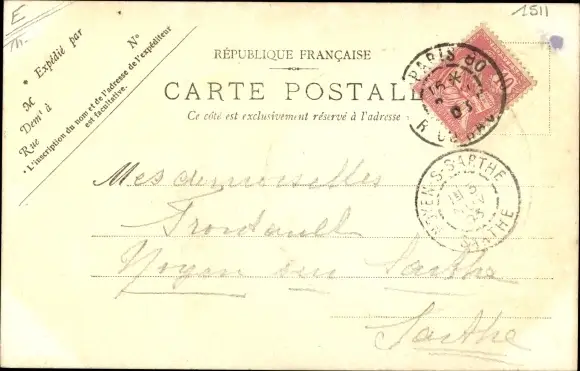 E
1511
N°
Expédié par
M
Demt à
Rue
* L'inscription du nom et de l'adresse de l'expéditeur
est facultative.
RÉPUBLIQUE FRANÇAISE
CARTE POSTALE
Ce côté est exclusivement réservé à l'adresse
PARIS 80
NOYEN-S-SARTHE
SARTHE
Mesdemoiselles
Frontault
Noyen sur Sarthe
Sarthe